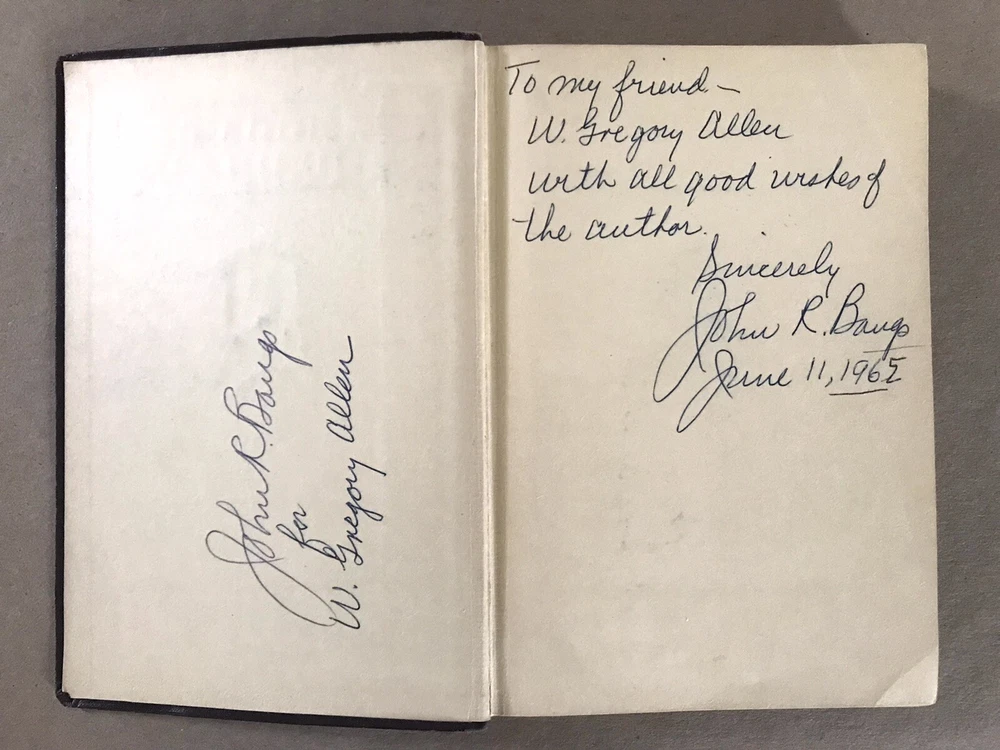 John R. Bangs
for
W. Gregory Allen
To my friend –
W. Gregory Allen
with all good wishes of
the author.
Sincerely
John R. Bangs
June 11, 1965